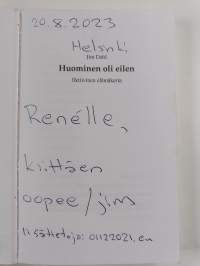 20.8.2023
Helsinki
Jim Dahl
Huominen oli eilen
Renélle,
kiittäen
oopee/jim
lisätietoja: 01122021.eu